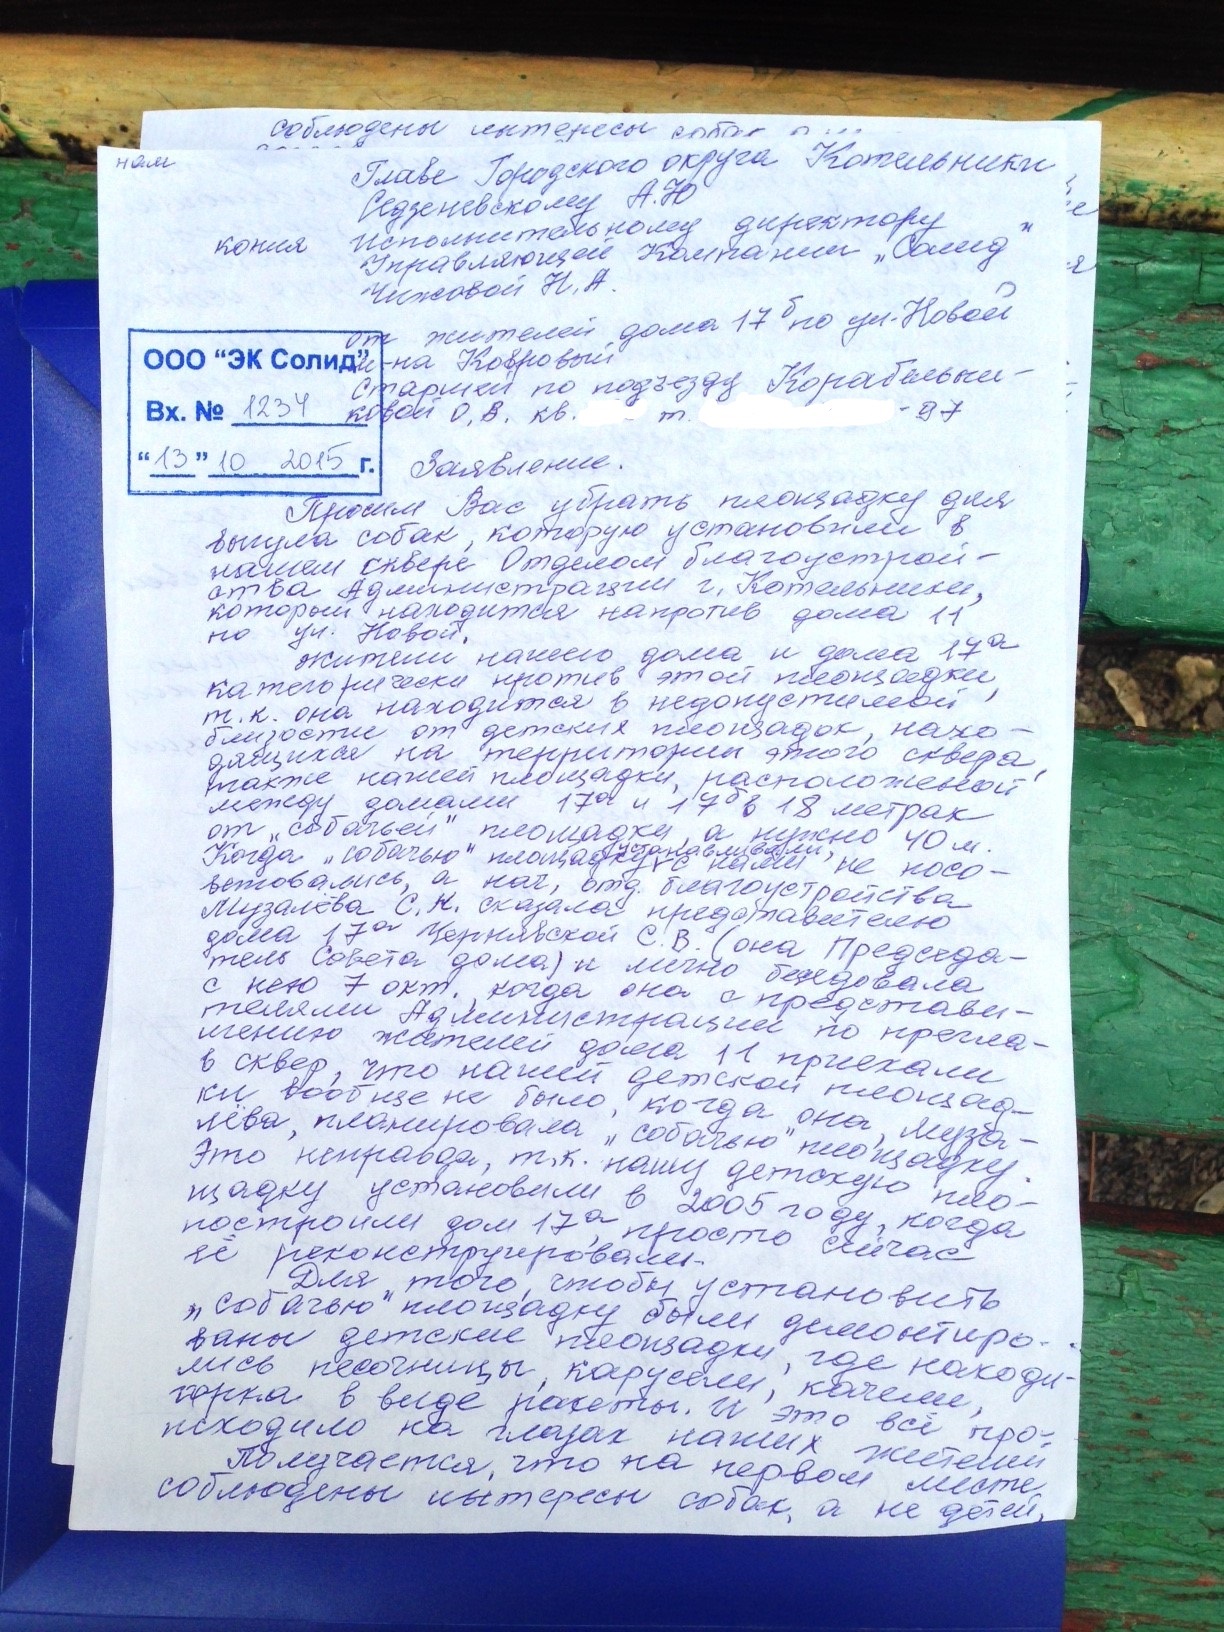 соблюдены интересы собак, а не
нам
Главе Городского округа Котельники
Седзеневскому А.Ю
копия Исполнительному директору
Управляющей Компании „Солид"
Чижовой Н.А.
от жителей дома 17б по ул. Новой
м-на Ковровый
Старшей по подъезду Корабельни-
ковой О.В. кв. т. -97
ООО “ЭК Солид”
Вх. № 1234
“13” 10 2015 г.
Заявление.
Просим Вас убрать площадку для
выгула собак, которую установили в
нашем сквере Отделом благоустрой-
ства Администрации г. Котельники,
который находится напротив дома 11
по ул. Новой.
Жители нашего дома и дома 17а
категорически против этой площадки,
т.к. она находится в недопустимой
близости от детских площадок, нахо-
дящихся на территории этого сквера,
также нашей площадки, расположенной
между домами 17а и 17б в 18 метрах
от „собачьей" площадки, а нужно 40 м.
Когда „собачью" площадку устанавливали, с нами не посо-
ветовались, а нач. отд. благоустройства
Музалёва С.Н. сказала представителю
дома 17а Чернявской С.В. (она Председа-
тель Совета дома) и лично беседовала
с нею 7 окт., когда она с представи-
телями Администрации по пригла-
шению жителей дома 11 приехали
в сквер, что нашей детской площад-
ки вообще не было, когда она, Муза-
лёва, планировала „собачью" площадку.
Это неправда, т.к. нашу детскую пло-
щадку установили в 2005 году, когда
построили дом 17а, просто сейчас
её реконструировали.
Для того, чтобы установить
„собачью" площадку были демонтиро-
ваны детские площадки, где находи-
лись песочницы, карусели, качели,
горка в виде ракеты. И это всё про-
исходило на глазах наших жителей
Получается, что на первом месте
соблюдены интересы собак, а не детей,